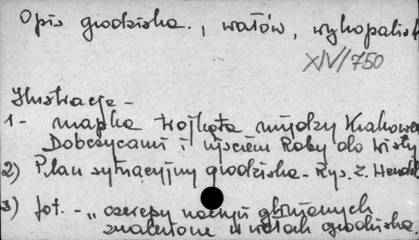 Opis grodziska, wałów, wykopalisk
XIV/750
Ilustracje -
1 - mapka trójkąta między Krakowem
Dobczycami i ujściem Raby do Wisły
2) Plan sytuacyjny grodziska - Rys. Z.
3) fot. - „ czerepy naczyń glinianych
znalezione w wałach grodziska